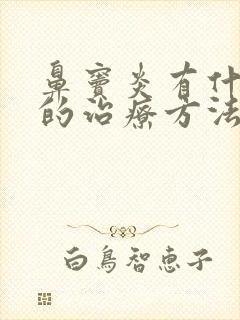 鼻窦炎有什
的治療方法
白鳥智恵子